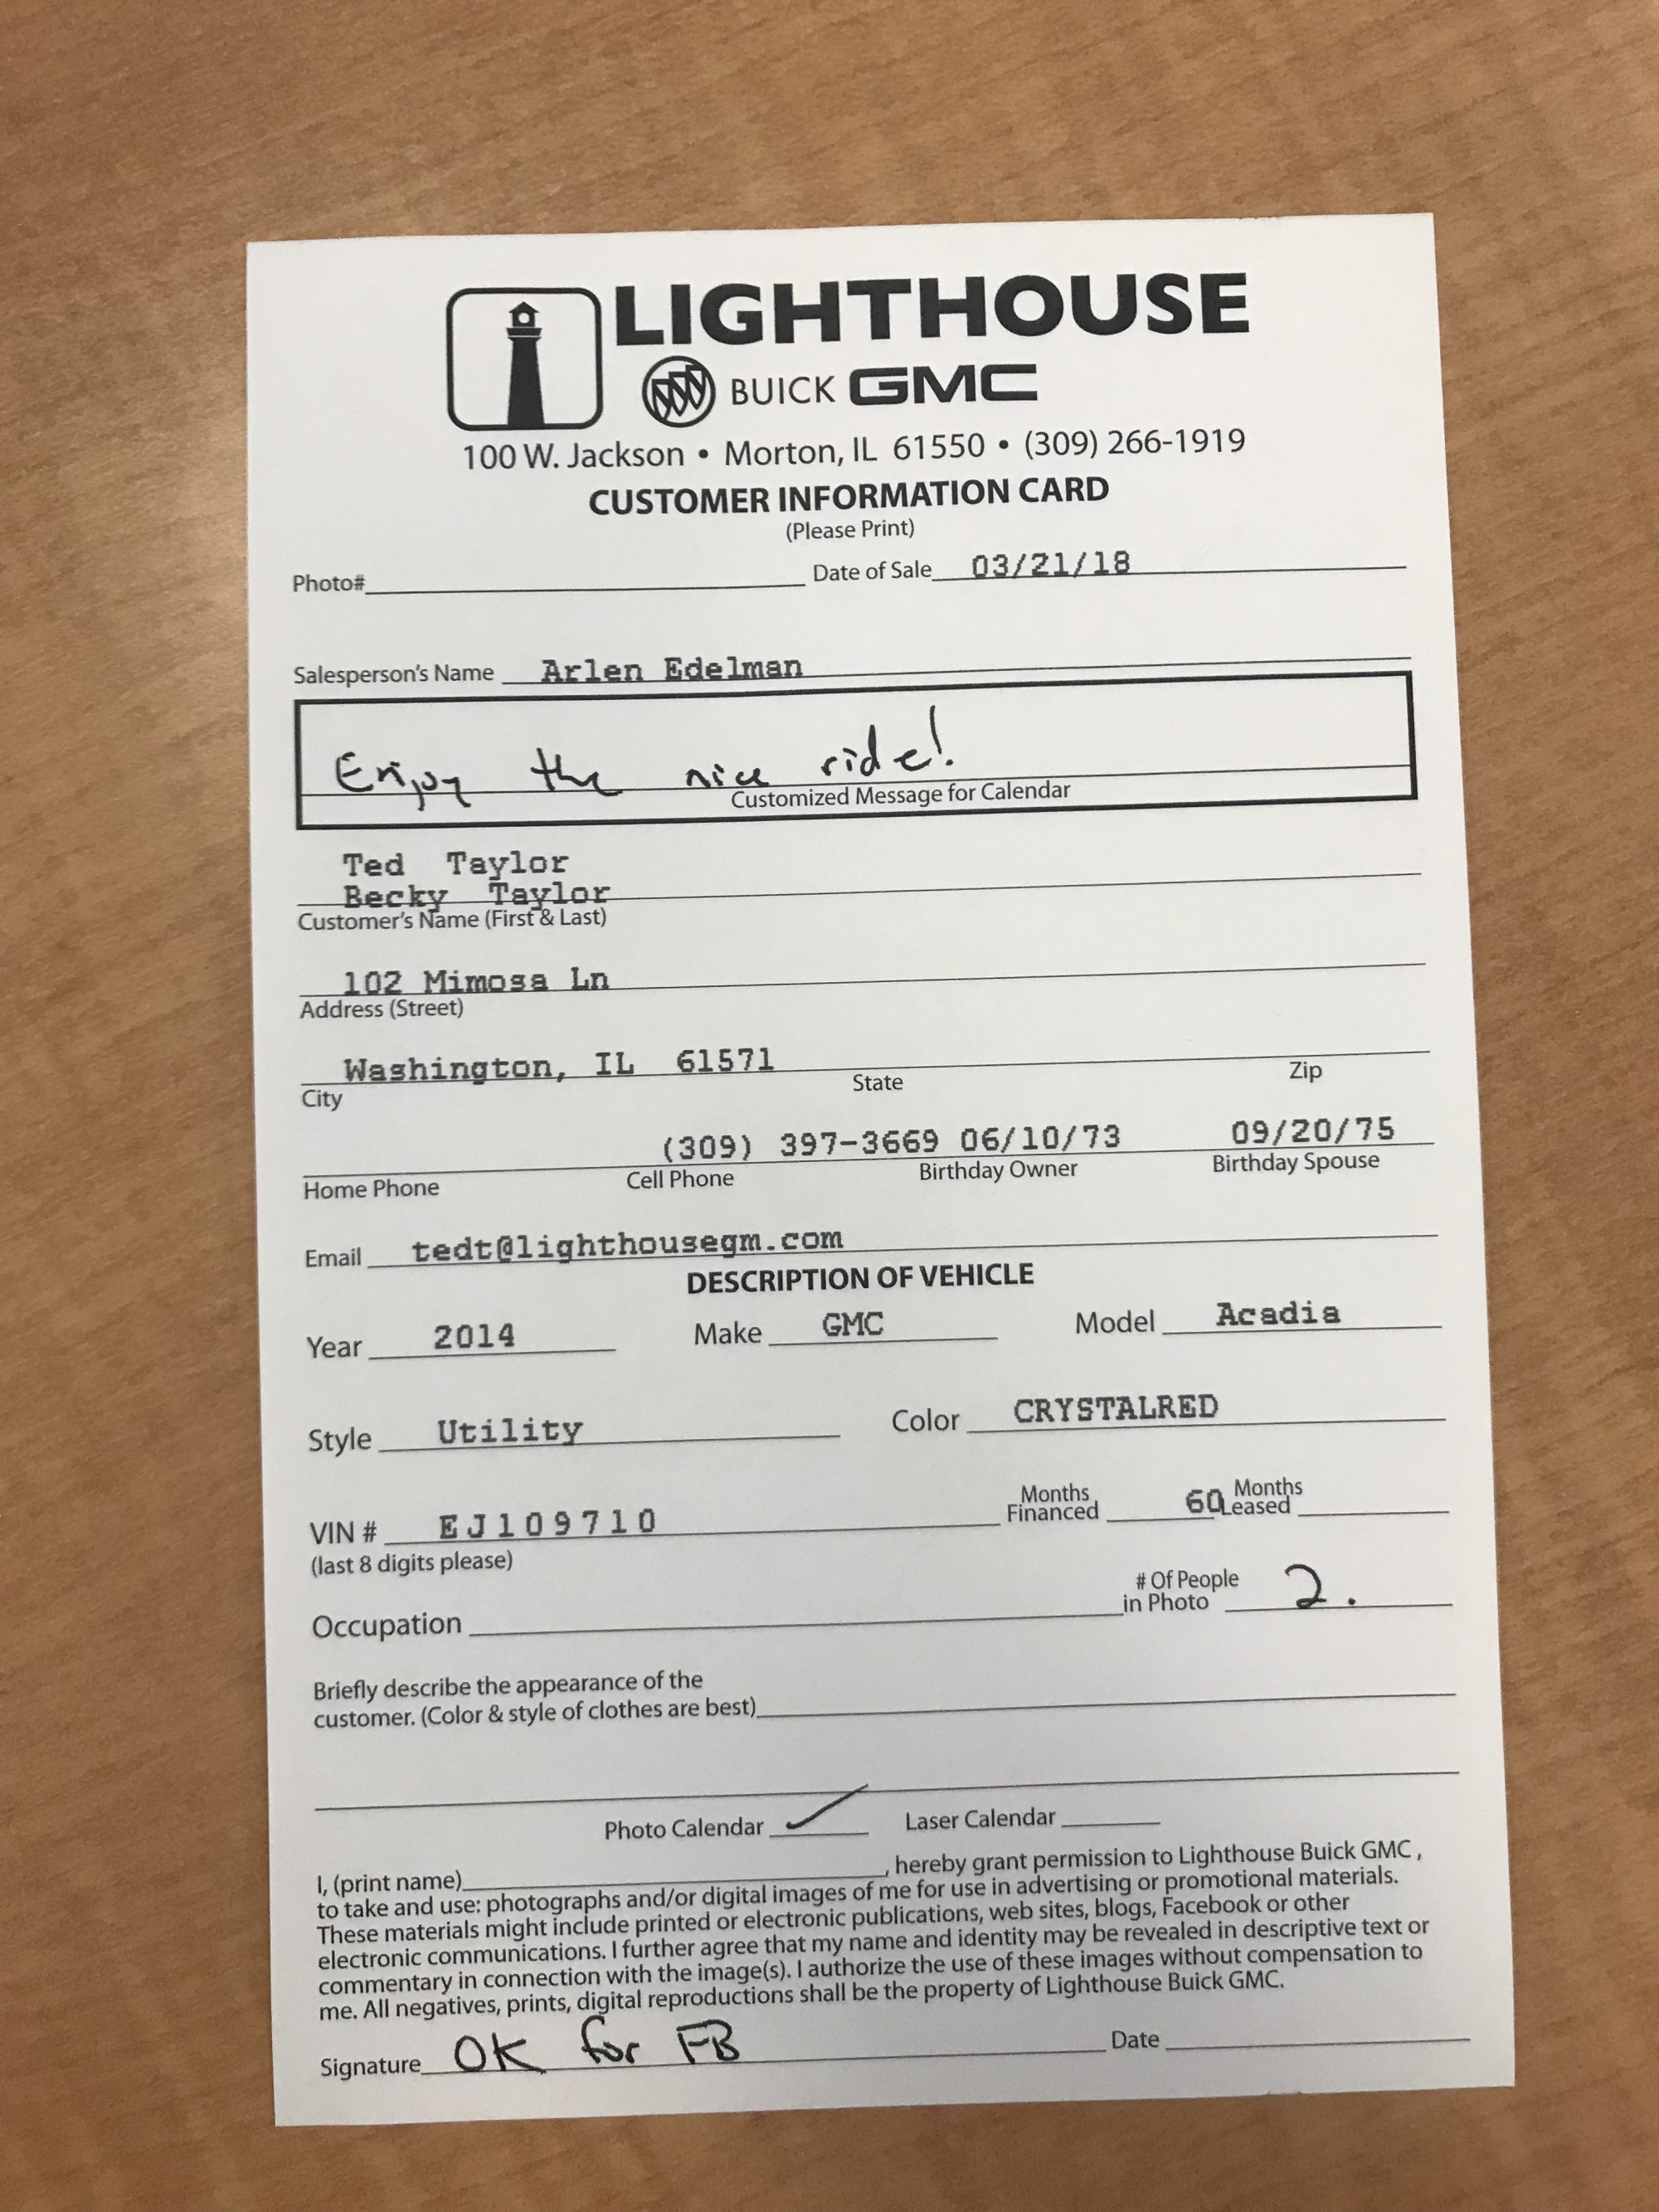 LIGHTHOUSE
BUICK GMC
100 W. Jackson • Morton, IL 61550 • (309) 266-1919
CUSTOMER INFORMATION CARD
(Please Print)
Photo# Date of Sale 03/21/18
Salesperson's Name Arlen Edelman
Enjoy the nice ride!
Customized Message for Calendar
Ted Taylor
Becky Taylor
Customer's Name (First & Last)
102 Mimosa Ln
Address (Street)
Washington, IL 61571
City State Zip
(309) 397-3669 06/10/73 09/20/75
Home Phone Cell Phone Birthday Owner Birthday Spouse
Email tedt@lighthousegm.com
DESCRIPTION OF VEHICLE
Year 2014 Make GMC Model Acadia
Style Utility Color CRYSTALRED
VIN # EJ109710 Months Financed 60 Months Leased
(last 8 digits please)
Occupation # Of People in Photo 2.
Briefly describe the appearance of the
customer. (Color & style of clothes are best)
Photo Calendar ✓ Laser Calendar
I, (print name) , hereby grant permission to Lighthouse Buick GMC ,
to take and use: photographs and/or digital images of me for use in advertising or promotional materials.
These materials might include printed or electronic publications, web sites, blogs, Facebook or other
electronic communications. I further agree that my name and identity may be revealed in descriptive text or
commentary in connection with the image(s). I authorize the use of these images without compensation to
me. All negatives, prints, digital reproductions shall be the property of Lighthouse Buick GMC.
Signature OK for FB Date